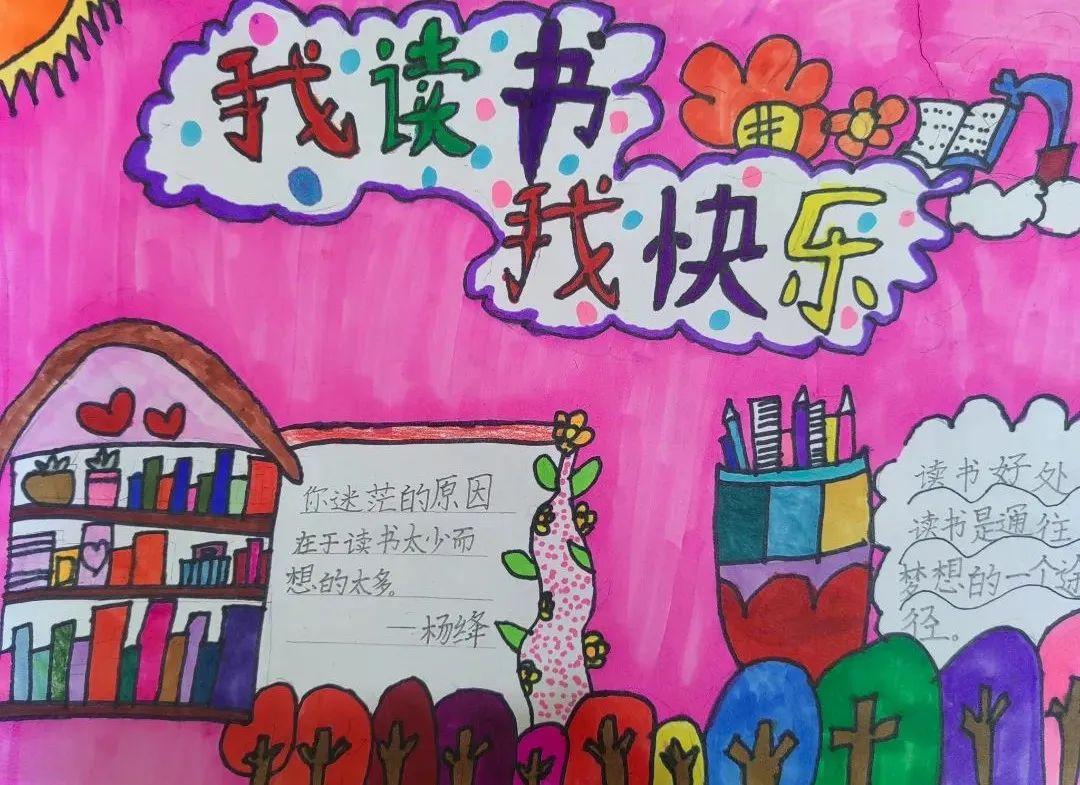 我读书
我快乐
你迷茫的原因
在于读书太少而
想的太多。
—杨绛
读书好处
读书是通往
梦想的一个途
径。